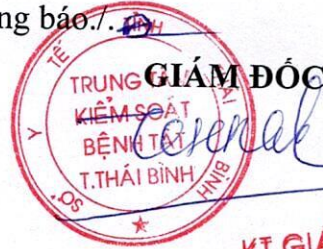 ng báo./.
GIÁM ĐỐC
SỞ Y TẾ TỈNH THÁI BÌNH
TRUNG TÂM
KIỂM SOÁT
BỆNH TẬT
T.THÁI BÌNH
KT GIÁ